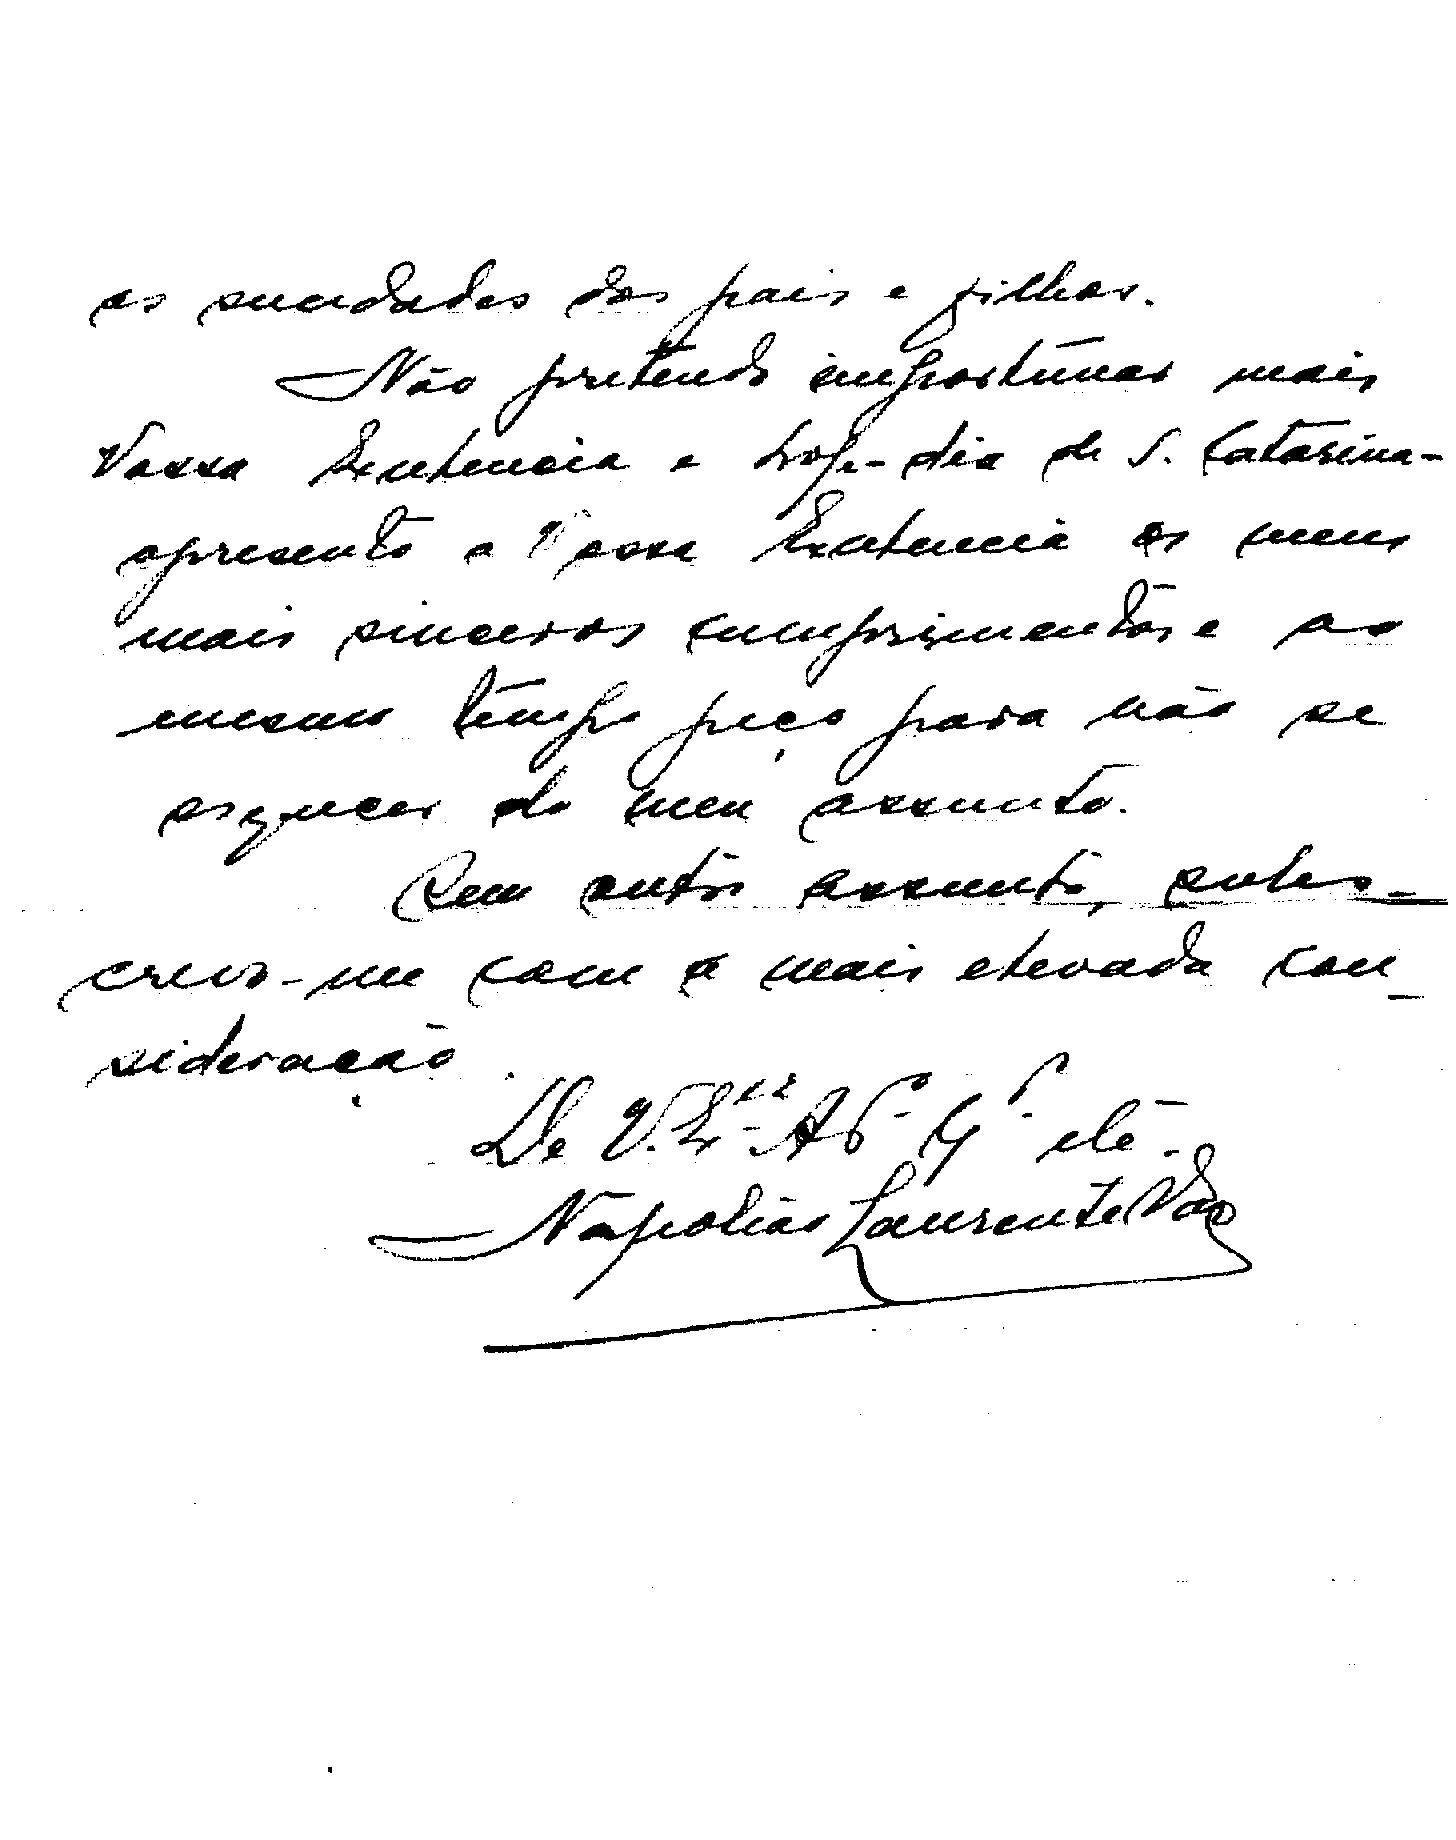 as saudades dos pais e filhos.
Não pretendo importunar mais
Vossa Excelencia e hoje - dia de S. Catarina -
apresento a Vossa Excelencia os meus
mais sinceros cumprimentos e ao
mesmo tempo peço para não se
esquecer do meu assunto.
Sem outro assunto, subs-
crevo-me com a mais elevada con-
sideração.
De V. Ex.cia At.º
Napolião Laurente Vás